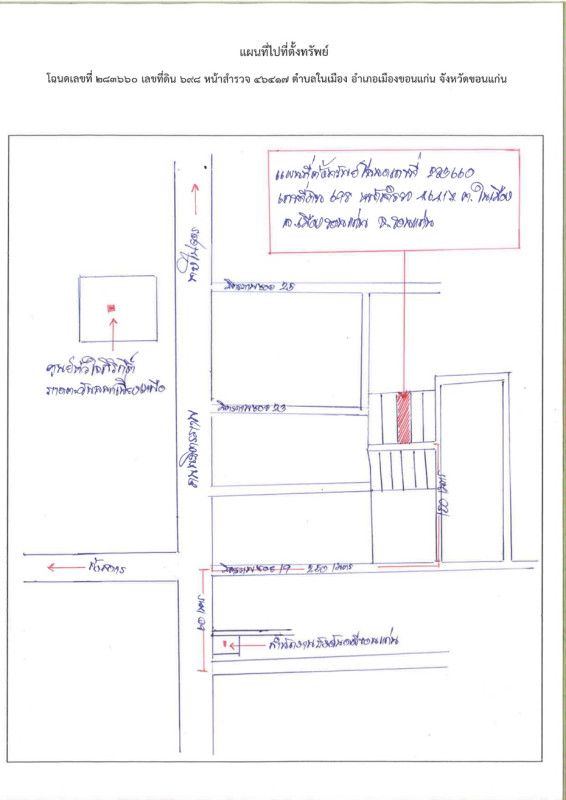 แผนที่ไปที่ตั้งทรัพย์
โฉนดเลขที่ ๒๘๓๖๖๐ เลขที่ดิน ๖๙๘ หน้าสำรวจ ๔๖๔๑๗ ตำบลในเมือง อำเภอเมืองขอนแก่น จังหวัดขอนแก่น
แผนที่ตั้งทรัพย์ โฉนดเลขที่ 283660
เลขที่ดิน 698 หน้าสำรวจ 46417 ต.ในเมือง
อ.เมืองขอนแก่น จ.ขอนแก่น
ไปอุดร
มิตรภาพซอย 25
ศูนย์หัวใจสิริกิติ์
ภาคตะวันออกเฉียงเหนือ
มิตรภาพซอย 23
ถนนมิตรภาพ
120 เมตร
มิตรภาพซอย 19
250 เมตร
60 เมตร
สำนักงานบังคับคดีขอนแก่น